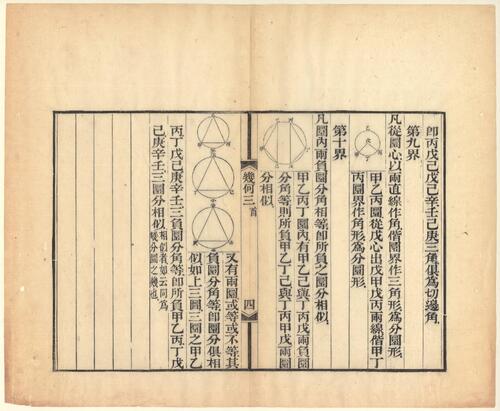 卽丙戊己戊己辛壬己庚三角俱爲切邊角
第九界
凡從圜心以兩直線作角偕圜界作三角形爲分圜形
甲乙丙丁圜從戊心出戊甲戊丙兩線偕甲丁
丙圜界作角形爲分圜形
第十界
凡圜內兩負圜分角相等卽所負之圜分相似
甲乙丙丁圜內有甲乙己與丁丙戊兩負圜
分角等則所負甲乙丁己與丁丙甲戊兩圜
分相似
幾何三首
四
又有兩圜或等或不等其
負圜分角等卽圜分俱相
似如上三圜三圜之甲乙
丙丁戊己庚辛壬三負圜分角等卽所負甲乙丙丁戊
己庚辛壬三圜分相似相似者如云同爲
幾分圜之幾也